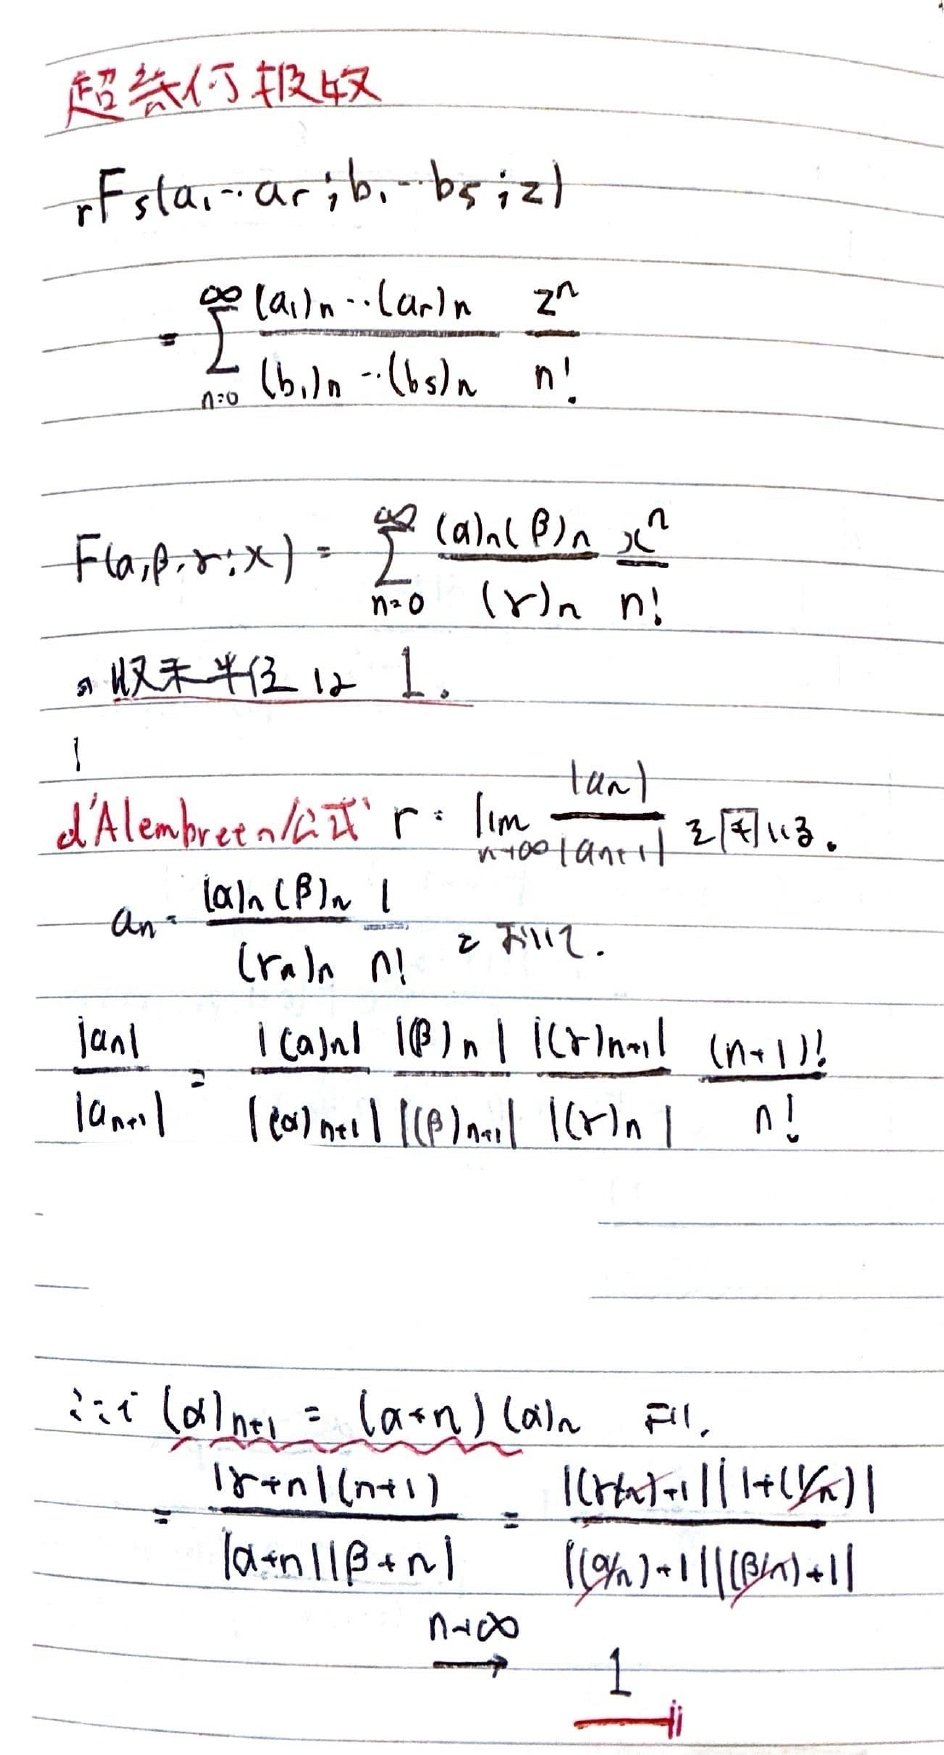 超幾何級数
rFs(a1…ar;b1…bs;z)
= Σ_{n=0}^{∞} (a1)n…(ar)n / (b1)n…(bs)n z^n / n!
F(α,β,γ;x) = Σ_{n=0}^{∞} (α)n(β)n / (γ)n x^n / n!
の収束半径は 1.
d'Alembreeの公式 r = lim_{n→∞} |an| / |an+1| を用いる.
an = (α)n(β)n / (γn)n 1 / n! とおいて.
|an| / |an+1| = |(α)n| / |(α)n+1| |(β)n| / |(β)n+1| |(γ)n+1| / |(γ)n| (n+1)! / n!
ここで (α)n+1 = (α+n)(α)n より.
= |γ+n|(n+1) / |α+n||β+n| = |(γ/n)+1||1+(1/n)| / |(α/n)+1||(β/n)+1|
n→∞
→ 1